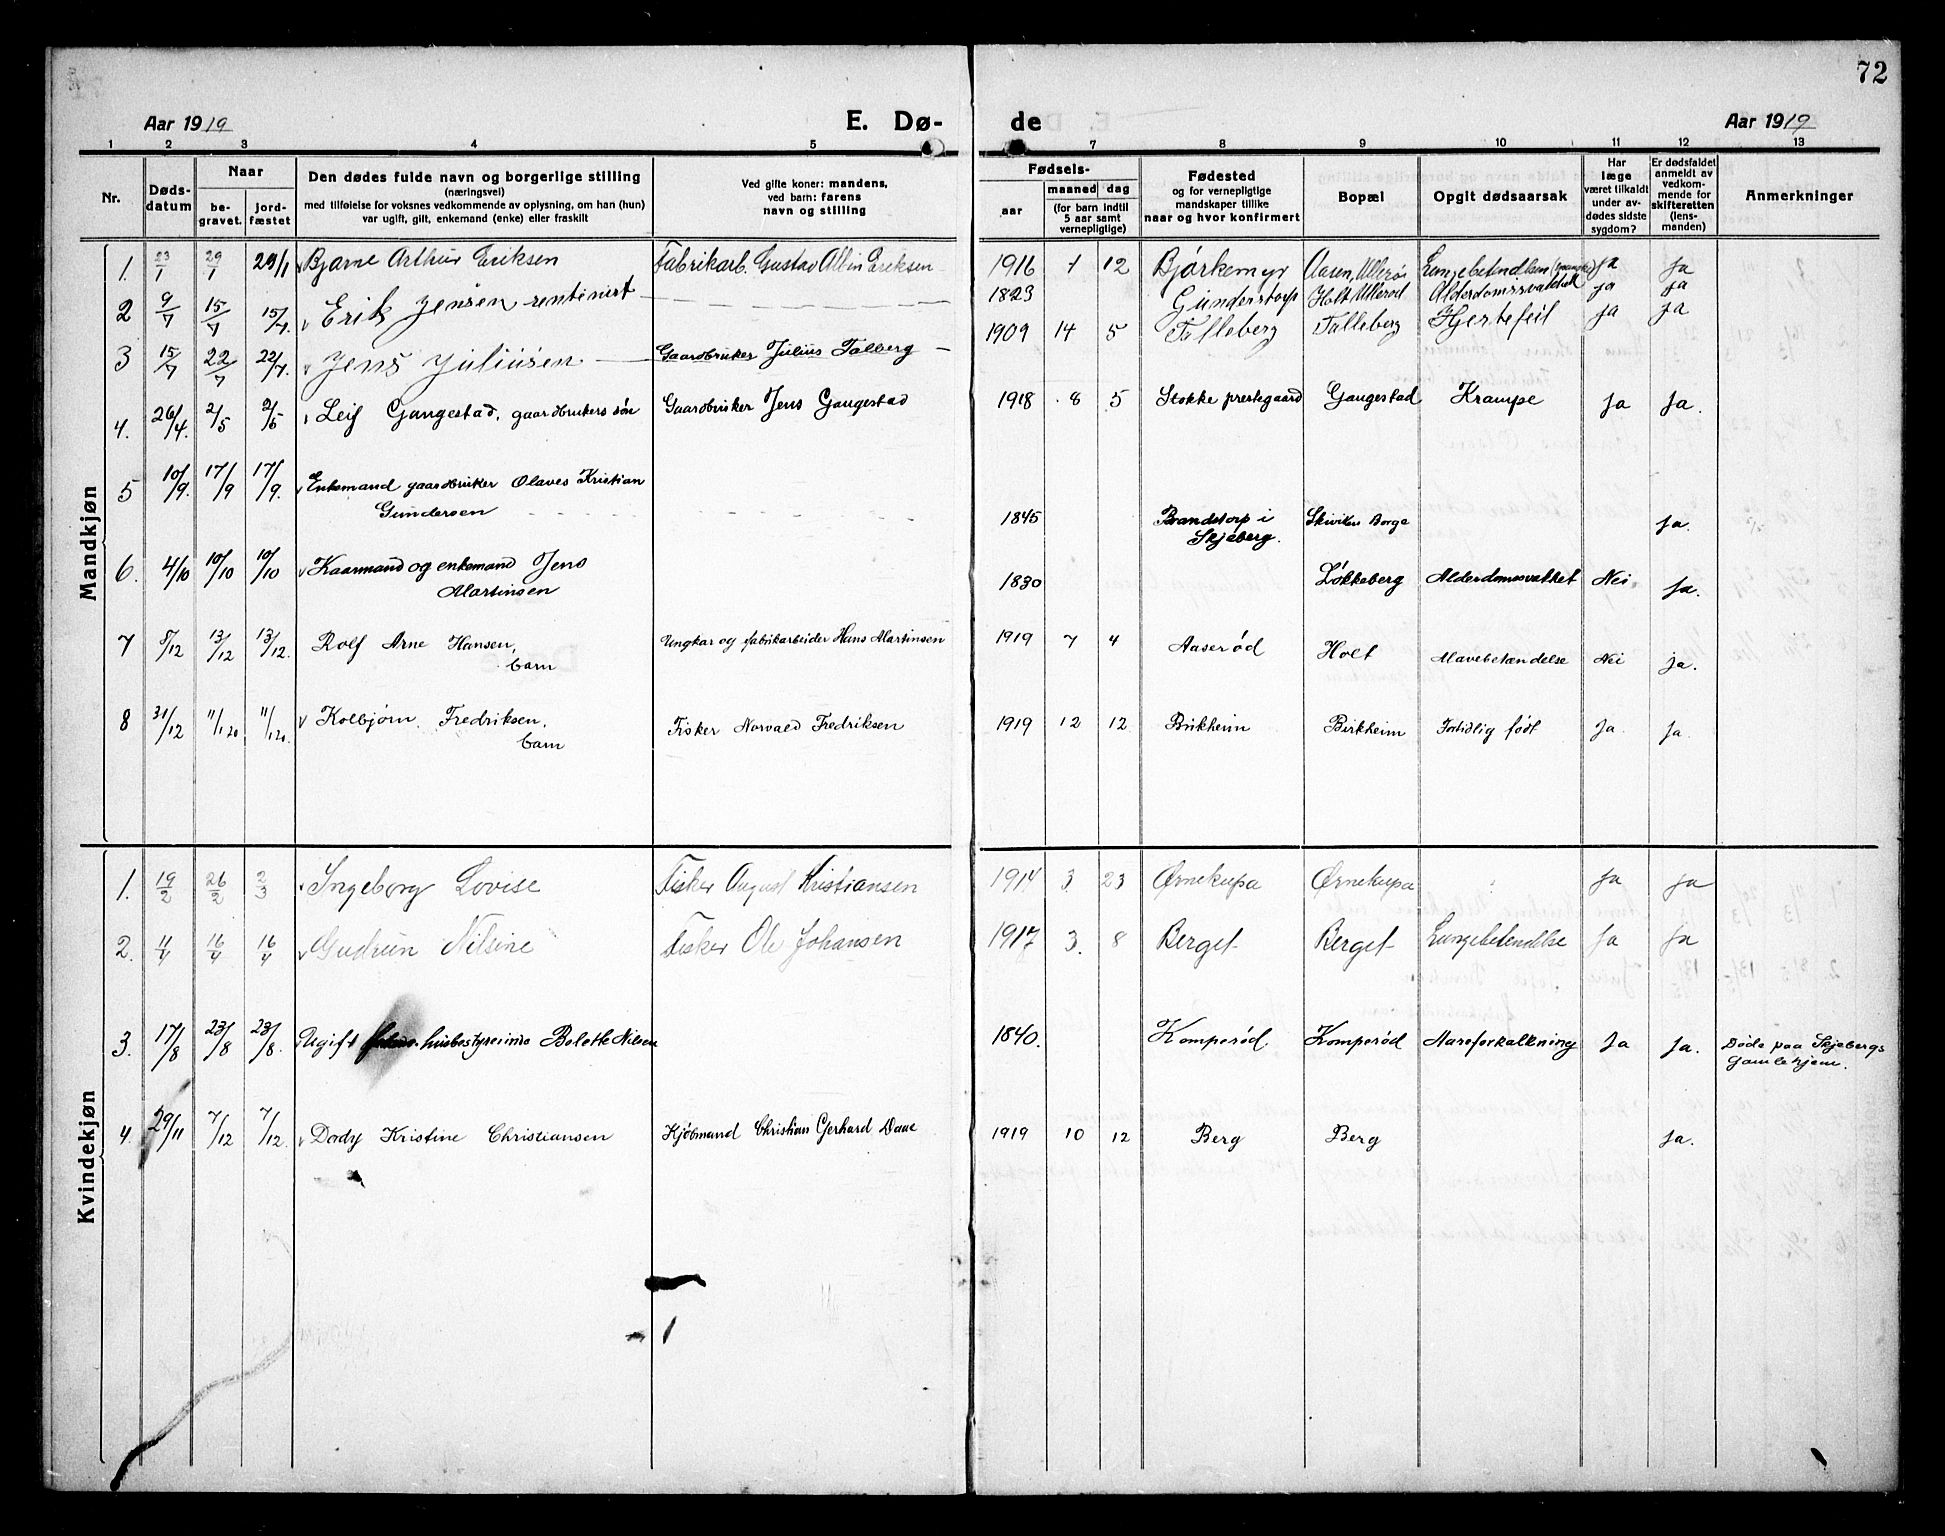 72
Aar 1919 E. Dø-
de Aar 1919
1 2 3 4 5
7 8 9 10 11 12 13
Nr.
Døds-
datum
Naar
be-
gravet.
jord-
fæstet
Den dødes fulde navn og borgerlige stilling
(næringsvei)
med tilføielse for voksnes vedkommende av oplysning, om han (hun)
var ugift, gift, enkemand (enke) eller fraskilt
Ved gifte koner: mandens,
ved barn: farens
navn og stilling
Fødsels-
aar
maaned dag
(for barn indtil
5 aar samt
vernepligtige)
Fødested
og for vernepligtige
mandskaper tillike
naar og hvor konfirmert
Bopæl
Opgit dødsaarsak
Har
læge
været tilkaldt
under av-
dødes sidste
sygdom?
Er dødsfaldet
anmeldt av
vedkom-
mende for
skifteretten
(lens-
manden)
Anmerkninger
Mandkjøn
1. 23/1 29/1 29/1 Bjarne Arthur Eriksen Fabrikarb. Gustav Albin Eriksen 1916 1 12 Bjørkemyr Aasen, Ullerø ja ja
2 9/7 15/7 15/7. Erik Jensen rentenist 1823 Gunderstorp Holt Ullerød ja ja
3 15/7 22/7 22/7. Jens Juliussen Gaardbruker Julius Talberg 1909 14 5 Talleberg Talleberg Hjertefeil ja ja
4. 26/4. 2/5 2/5 Leif Gangestad, gaardbrukers søn Gaardbruker Jens Gangestad 1918 8 5 Stokke prestegaard Gangestad Krampe Ja Ja.
5 10/9. 17/9 17/9. Enkemand gaardbruker Olaves Kristian
Gundersen 1845 Brandstorp i
Skjeberg. Skiviken Borge Ja.
6. 4/10 10/10 10/10 Kaarmand og enkemand Jens
Martinsen 1830 Løkkeberg Alderdomssvakhet Nei Ja.
7 8/12 13/12 13/12. Rolf Arne Hansen,
barn Ungkar og fabrikarbeider Hans Martinsen 1919 7 4 Aaserød Holt Mavebetændelse Nei ja.
8 31/12 11/1 20 11/1 20. Kolbjørn Fredriksen,
barn Fisker Norvald Fredriksen 1919 12 12 Birkheim Birkheim Fortidlig født Ja Ja.
Kvindekjøn
1. 19/2 26/2 2/3 Ingeborg Lovise Fisker August Kristiansen 1914 3 23 Ørnekupa Ørnekupa ja ja
2. 11/4 16/4 16/4 Gudrun Nilsine Fisker Ole Johansen 1917 3. 8 Berget Berget Lungebetendelse Ja Ja
3. 17/8 23/8 23/8. Ugift husbestyrerinde Bolette Nilsen 1840. Komperød. Komperød Aareforkalkning Ja Ja. Døde paa Skjebergs
Gamlehjem.
4. 29/11 7/12 7/12. Dordy Kristine Christiansen Kjøbmand Christian Gerhard Daae 1919 10 12 Berg Berg Ja.